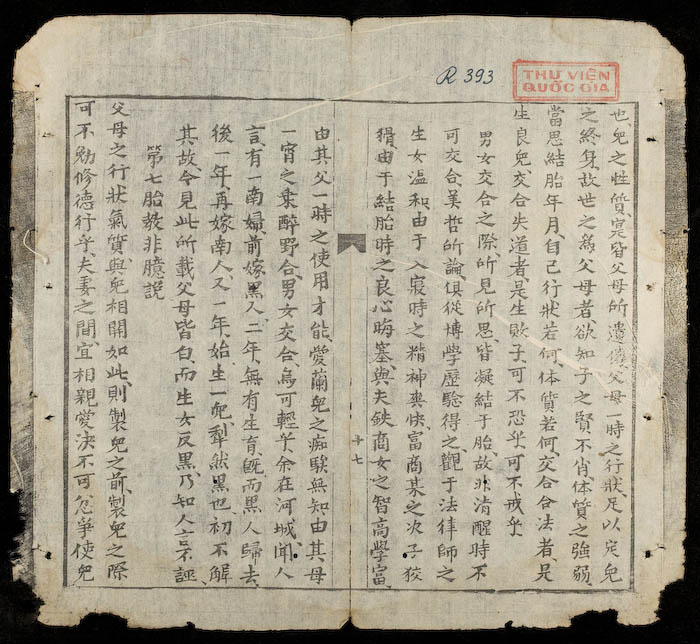 R 393
THƯ VIỆN
QUỐC GIA
也、兒之性質寔皆父母所遺傳、父母一時之行狀、足以定兒
之終身、故世之爲父母者欲知子之賢不肖、体質之強弱、
當思結胎年月、自己行狀若何、体質若何、交合合法者、是
生良兒、交合失道者、是生敗子、可不恐乎、可不戒乎
男女交合之際、所見所思、皆凝結于胎、故非清醒時不
可交合、美哲所論、俱從博學歷驗得之、觀于法律師之
生女温和、由于入寢時之精神爽快、富商某之次子狡
猾、由于結胎時之良心晦塞、與夫鉄商女之智高學富、
十七
由其父一時之使用才能、愛蘭兒之痴騃無知、由其母
一宵之乗醉野合、男女交合、烏可輕乎、余在河城、聞人
言、有一南婦、前嫁黑人二年、無有生育、既而黑人歸去、
後一年、再嫁南人、又一年、始生一兒、犁然黑也、初不解
其故、今見此所載父母皆白、而生女反黑、乃知人言不誣、
第七胎教非臆説
父母之行狀氣質、與兒相開如此、則製兒之前、製兒之際
可不勉修德行乎、夫妻之間、宜相親愛、決不可忿爭、使兒